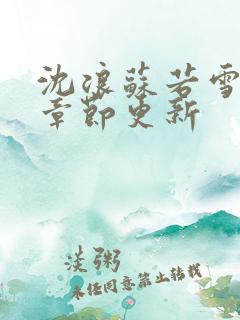 沈浪蘇若雪
章節更新
淡粥
未经同意禁止转载